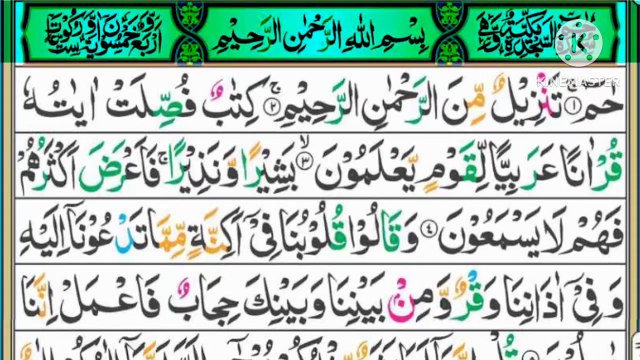 بِسْمِ اللّٰهِ الرَّحْمٰنِ الرَّحِيْمِ
KINEMASTER
حٰمٓ ۚ ﴿۱﴾ تَنْزِيْلٌ مِّنَ الرَّحْمٰنِ الرَّحِيْمِ ۚ ﴿۲﴾ كِتٰبٌ فُصِّلَتْ اٰيٰتُهٗ
قُرْاٰنًا عَرَبِيًّا لِّقَوْمٍ يَّعْلَمُوْنَ ۙ ﴿۳﴾ بَشِيْرًا وَّنَذِيْرًا ۚ فَاَعْرَضَ اَكْثَرُهُمْ
فَهُمْ لَا يَسْمَعُوْنَ ﴿۴﴾ وَقَالُوْا قُلُوْبُنَا فِيْٓ اَكِنَّةٍ مِّمَّا تَدْعُوْنَاۤ اِلَيْهِ
وَفِيْٓ اٰذَانِنَا وَقْرٌ وَّمِنْۢ بَيْنِنَا وَبَيْنِكَ حِجَابٌ فَاعْمَلْ اِنَّنَا